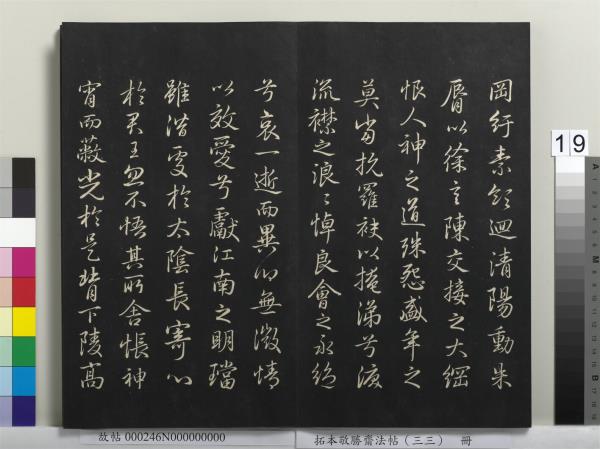 岡紆素領迴清陽動朱
脣以徐言陳交接之大綱
恨人神之道殊怨盛年之
莫當抗羅袂以掩涕兮淚
流襟之浪〻悼良會之永絕
兮哀一逝而異鄉無微情
以效愛兮獻江南之明璫
雖潛處於太陰長寄心
於君王忽不悟其所舍悵神
宵而蔽光於是背下陵高
19
故帖 000246N000000000
拓本敬勝齋法帖（三三） 冊